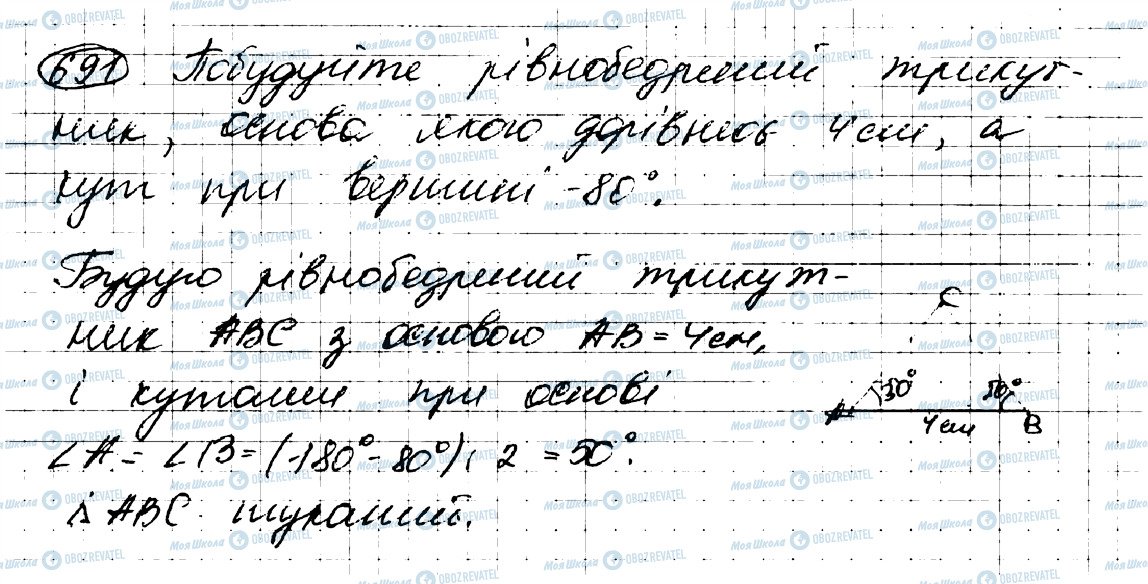 691 Побудуйте рівнобедрений трикут-
ник, основа якого дорівнює 4 см, а
кут при вершині - 80°.
Будую рівнобедрений трикут-
ник ABC з основою AB = 4 см,
і кутами при основі
∠A = ∠B = (180° - 80°) : 2 = 50°.
Δ ABC шуканий.
C
50° 50°
A 4 см B
МояШкола OBOZREVATEL